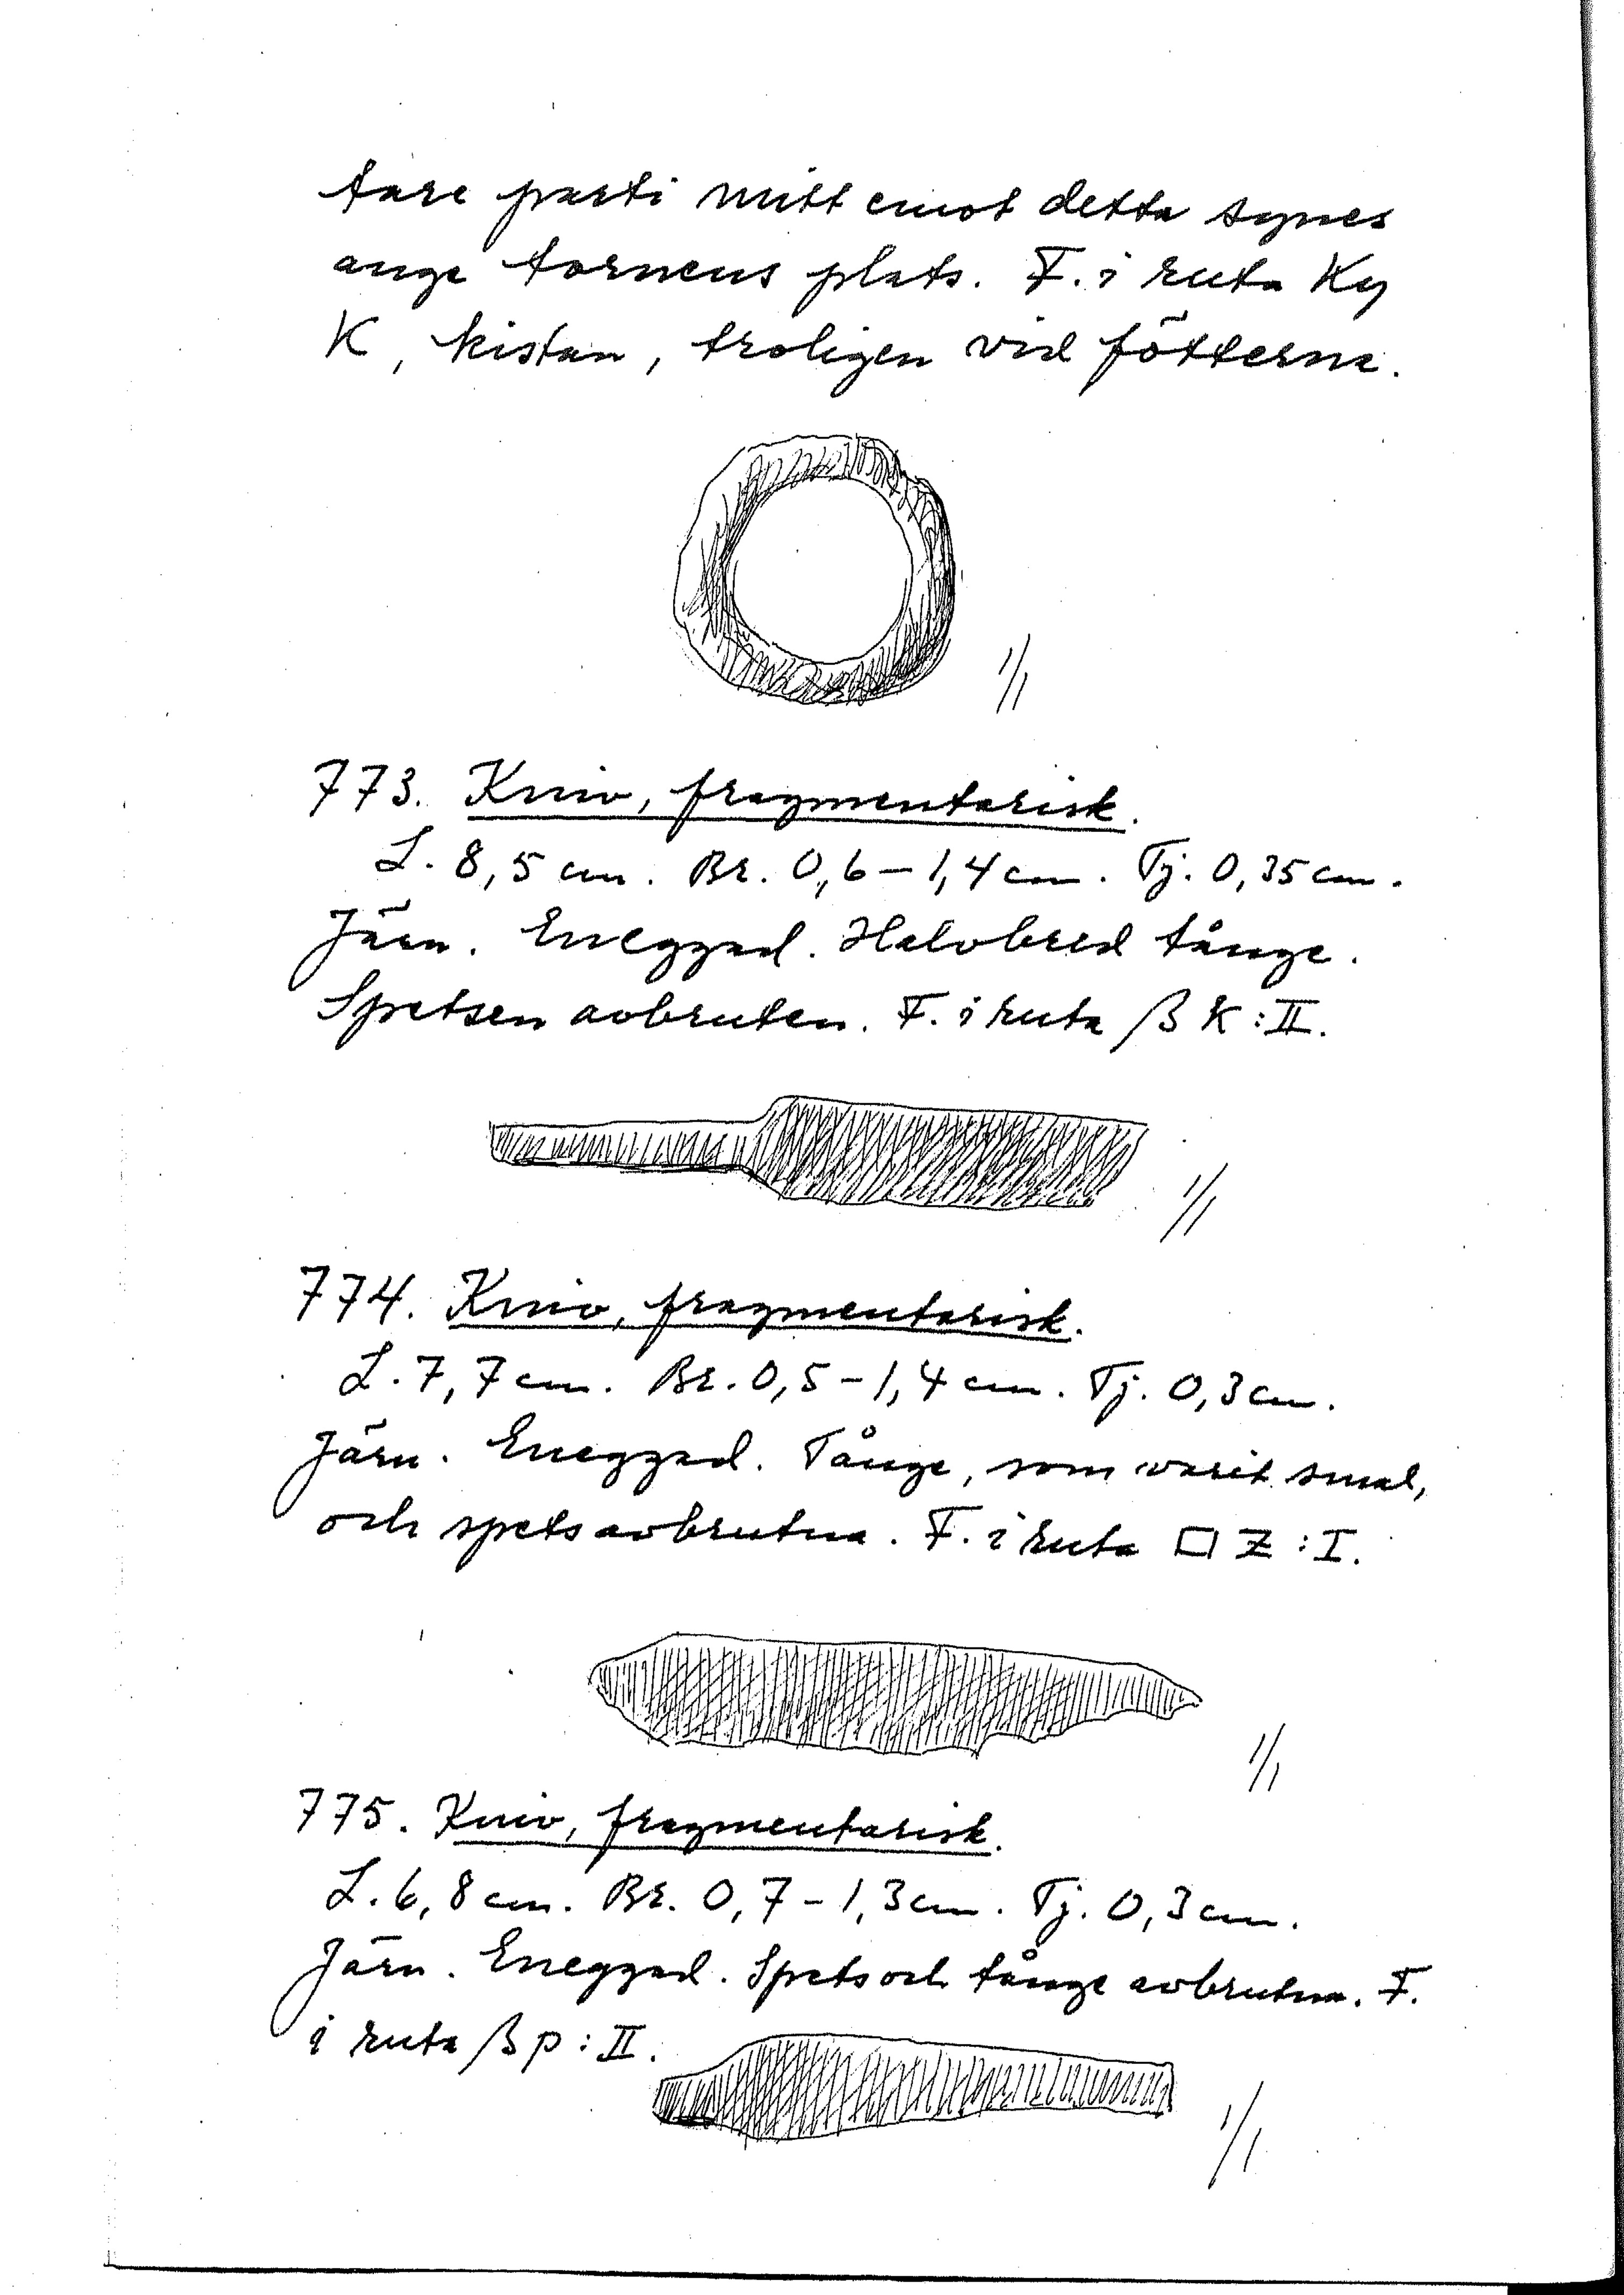 tare parti mitt emot detta synes
ange tornens plats. F. i ruta Ky
K, kistan, troligen vid fötterna.
1/1
773. Kniv, fragmentarisk.
L. 8,5 cm. Br. 0,6–1,4 cm. Tj. 0,35 cm.
Järn. Eneggad. Halvbred tånge.
Spetsen avbruten. F. i ruta ß K : II.
1/1
774. Kniv, fragmentarisk.
L. 7,7 cm. Br. 0,5–1,4 cm. Tj. 0,3 cm.
Järn. Eneggad. Tånge, som varit smal,
och spets avbrutna. F. i ruta □ Z : I.
1/1
775. Kniv, fragmentarisk.
L. 6,8 cm. Br. 0,7–1,3 cm. Tj. 0,3 cm.
Järn. Eneggad. Spets och tånge avbrutna. F.
i ruta ß p : II.
1/1